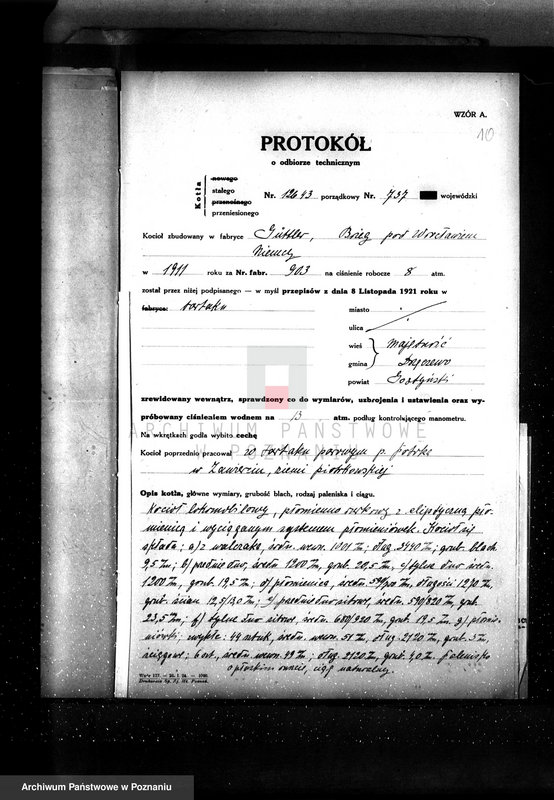 WZÓR A.
10
PROTOKÓŁ
o odbiorze technicznym
Kotła
nowego
stałego
przenośnego
przeniesionego
Nr. 12643 porządkowy Nr. 737 wojewódzki
Kocioł zbudowany w fabryce Güttler, Brieg pod Wrocławiem
Niemcy
w 1911 roku za Nr. fabr. 903 na ciśnienie robocze 8 atm.
został przez niżej podpisanego — w myśl przepisów z dnia 8 Listopada 1921 roku w
fabryce: tartaku
miasto
ulica
wieś
gmina
powiat Gostyński
zrewidowany wewnątrz, sprawdzony co do wymiarów, uzbrojenia i ustawienia oraz wy-
próbowany ciśnieniem wodnem na 13 atm. podług kontrolującego manometru.
Na wkrętkach godła wybito cechę
Kocioł poprzednio pracował w tartaku parowym p.
w Zawierciu, ziemi piotrkowskiej
Opis kotła, główne wymiary, grubość blach, rodzaj paleniska i ciągu.
Kocioł lokomobilowy, płomienno rurkowy z eliptyczną pło-
mienicą i wyciąganym systemem płomieniówek. Kocioł się
składa: a) z walczaka, śred. wewn. 1001 dług. 2140 grub. blach
9,5 b) przednie dno, śred. 1200 grub. 20,5 c) tylne dno śred.
1200 grub. 19,5 d) płomienica, śred. długości 1270
grub. ścian 12,5/13,0 e) przednie dno sitowe, śred. 590/820 grub.
23,5 f) tylne dno sitowe, śred. 680/920 grub. 19,5 g) płomie-
niówki: zwykłe: 49 sztuk, śred. wewn. 51 dług. 2120 grub. 3
ściągowe: 6 szt., śred. wewn. 49 dług. 2120 grub. 4,0 Palenisko
o płaskim ruszcie, ciąg naturalny.
Wzór 127. — 26. I. 24. — 1700.
Drukarnia Sp. Fj. Wł. Poznań.
ARCHIWUM PAŃSTWOWE
W POZNANIU
Archiwum Państwowe w Poznaniu